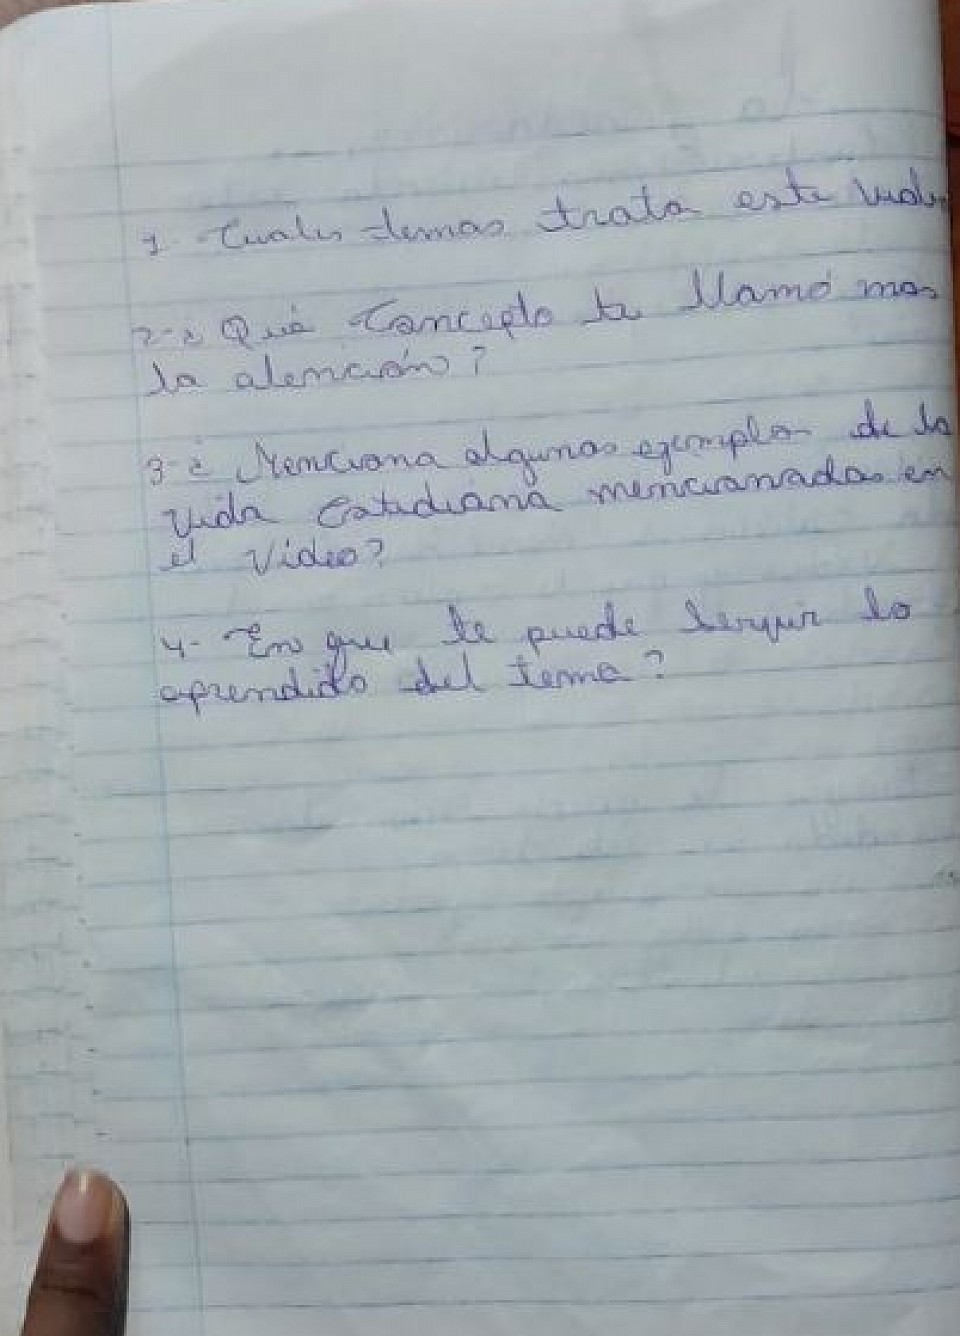 1- Cuales temas trata este video
2-¿ Qué Concepto te llamó mas
la atención?
3-¿ Menciona algunas ejemplo de la
vida cotidiana mencionadas en
el video?
4- En que te puede servir lo
aprendido del tema?